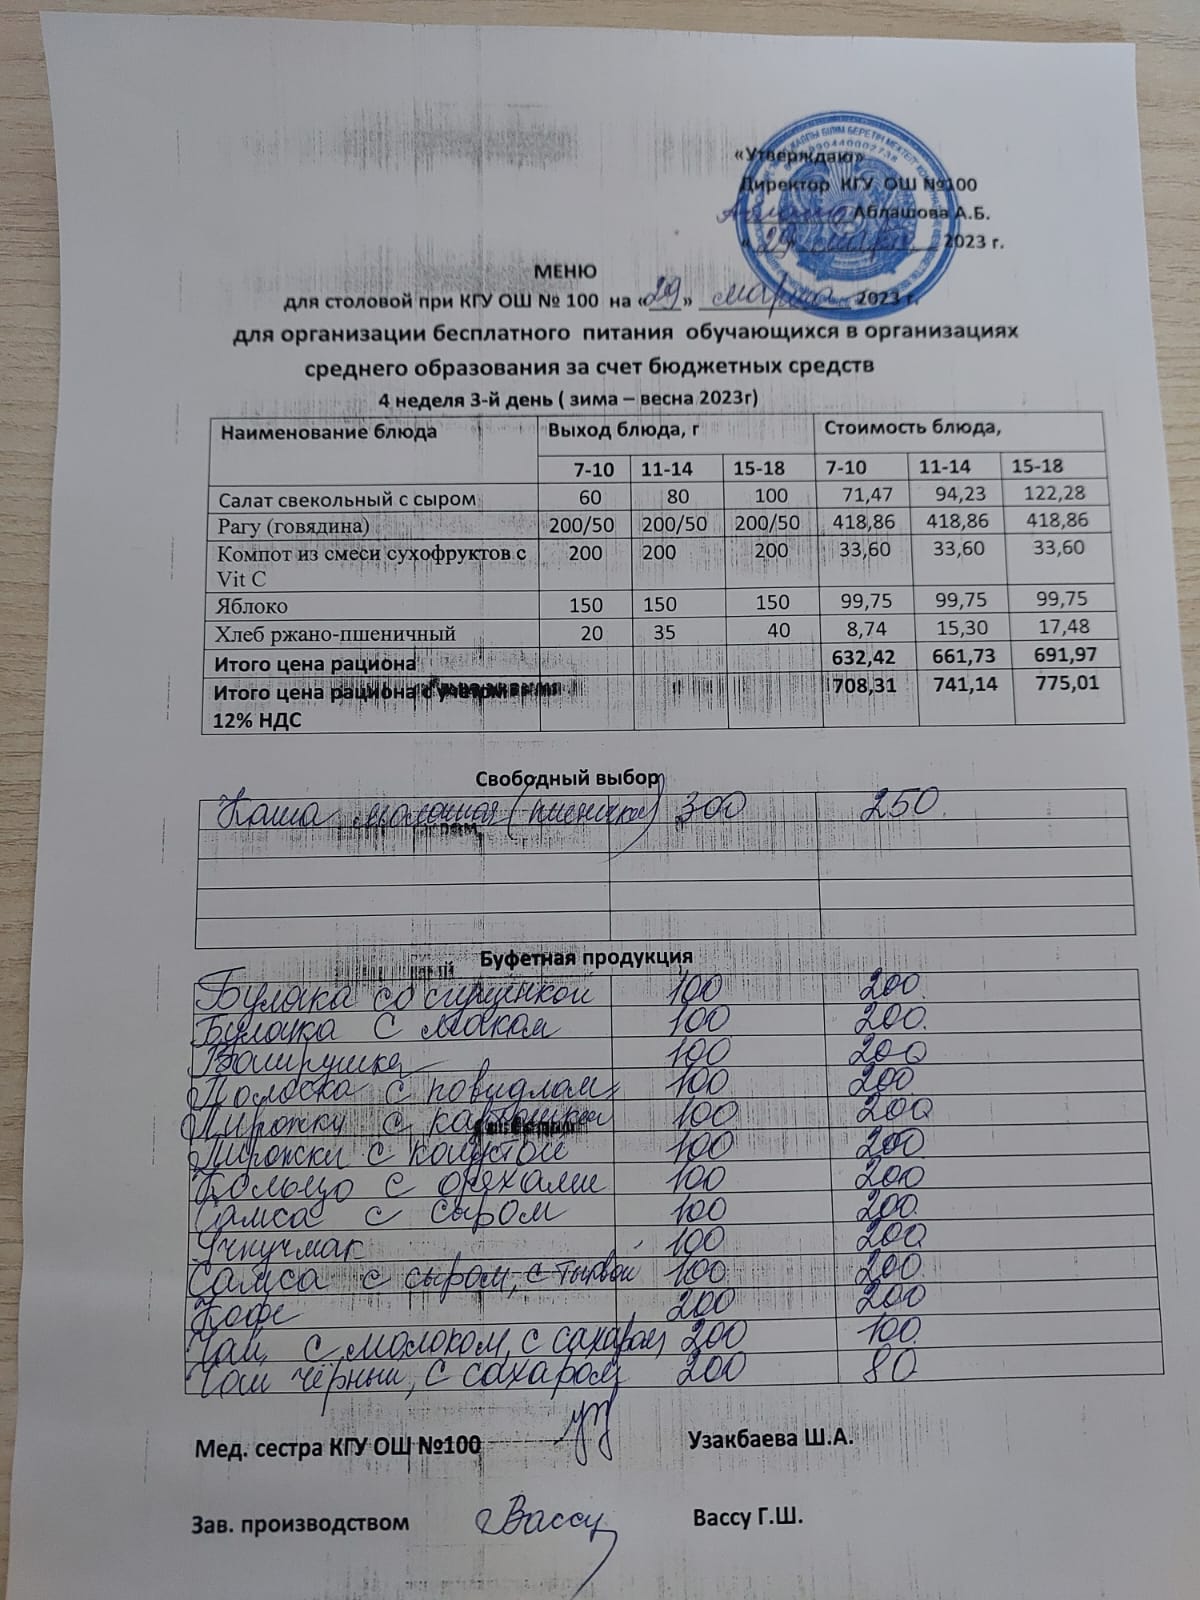 «Утверждаю»
Директор КГУ ОШ №100
Аблашова А.Б.
«29» марта 2023 г.
МЕНЮ
для столовой при КГУ ОШ № 100 на «29» марта 2023 г.
для организации бесплатного питания обучающихся в организациях
среднего образования за счет бюджетных средств
4 неделя 3-й день ( зима – весна 2023г)
Наименование блюда Выход блюда, г Стоимость блюда,
7-10 11-14 15-18 7-10 11-14 15-18
Салат свекольный с сыром 60 80 100 71,47 94,23 122,28
Рагу (говядина) 200/50 200/50 200/50 418,86 418,86 418,86
Компот из смеси сухофруктов с 200 200 200 33,60 33,60 33,60
Vit C
Яблоко 150 150 150 99,75 99,75 99,75
Хлеб ржано-пшеничный 20 35 40 8,74 15,30 17,48
Итого цена рациона 632,42 661,73 691,97
Итого цена рациона с учетом 708,31 741,14 775,01
12% НДС
Свободный выбор
Каша молочная 300 250
Буфетная продукция
Булочка со сгущенкой 100 200
Булочка с маком 100 200
Ватрушка 100 200
Полоска с повидлом 100 200
Пирожки с картошкой 100 200
Пирожки с капустой 100 200
Кольцо с орехами 100 200
Самса с сыром 100 200
Учпучмак 100 200
Самса с сыром, с тыквой 100 200
Кофе 200 200
Чай с молоком, с сахаром 200 100
Чай чёрный, с сахаром 200 80
Мед. сестра КГУ ОШ №100 Узакбаева Ш.А.
Зав. производством Вассу Вассу Г.Ш.